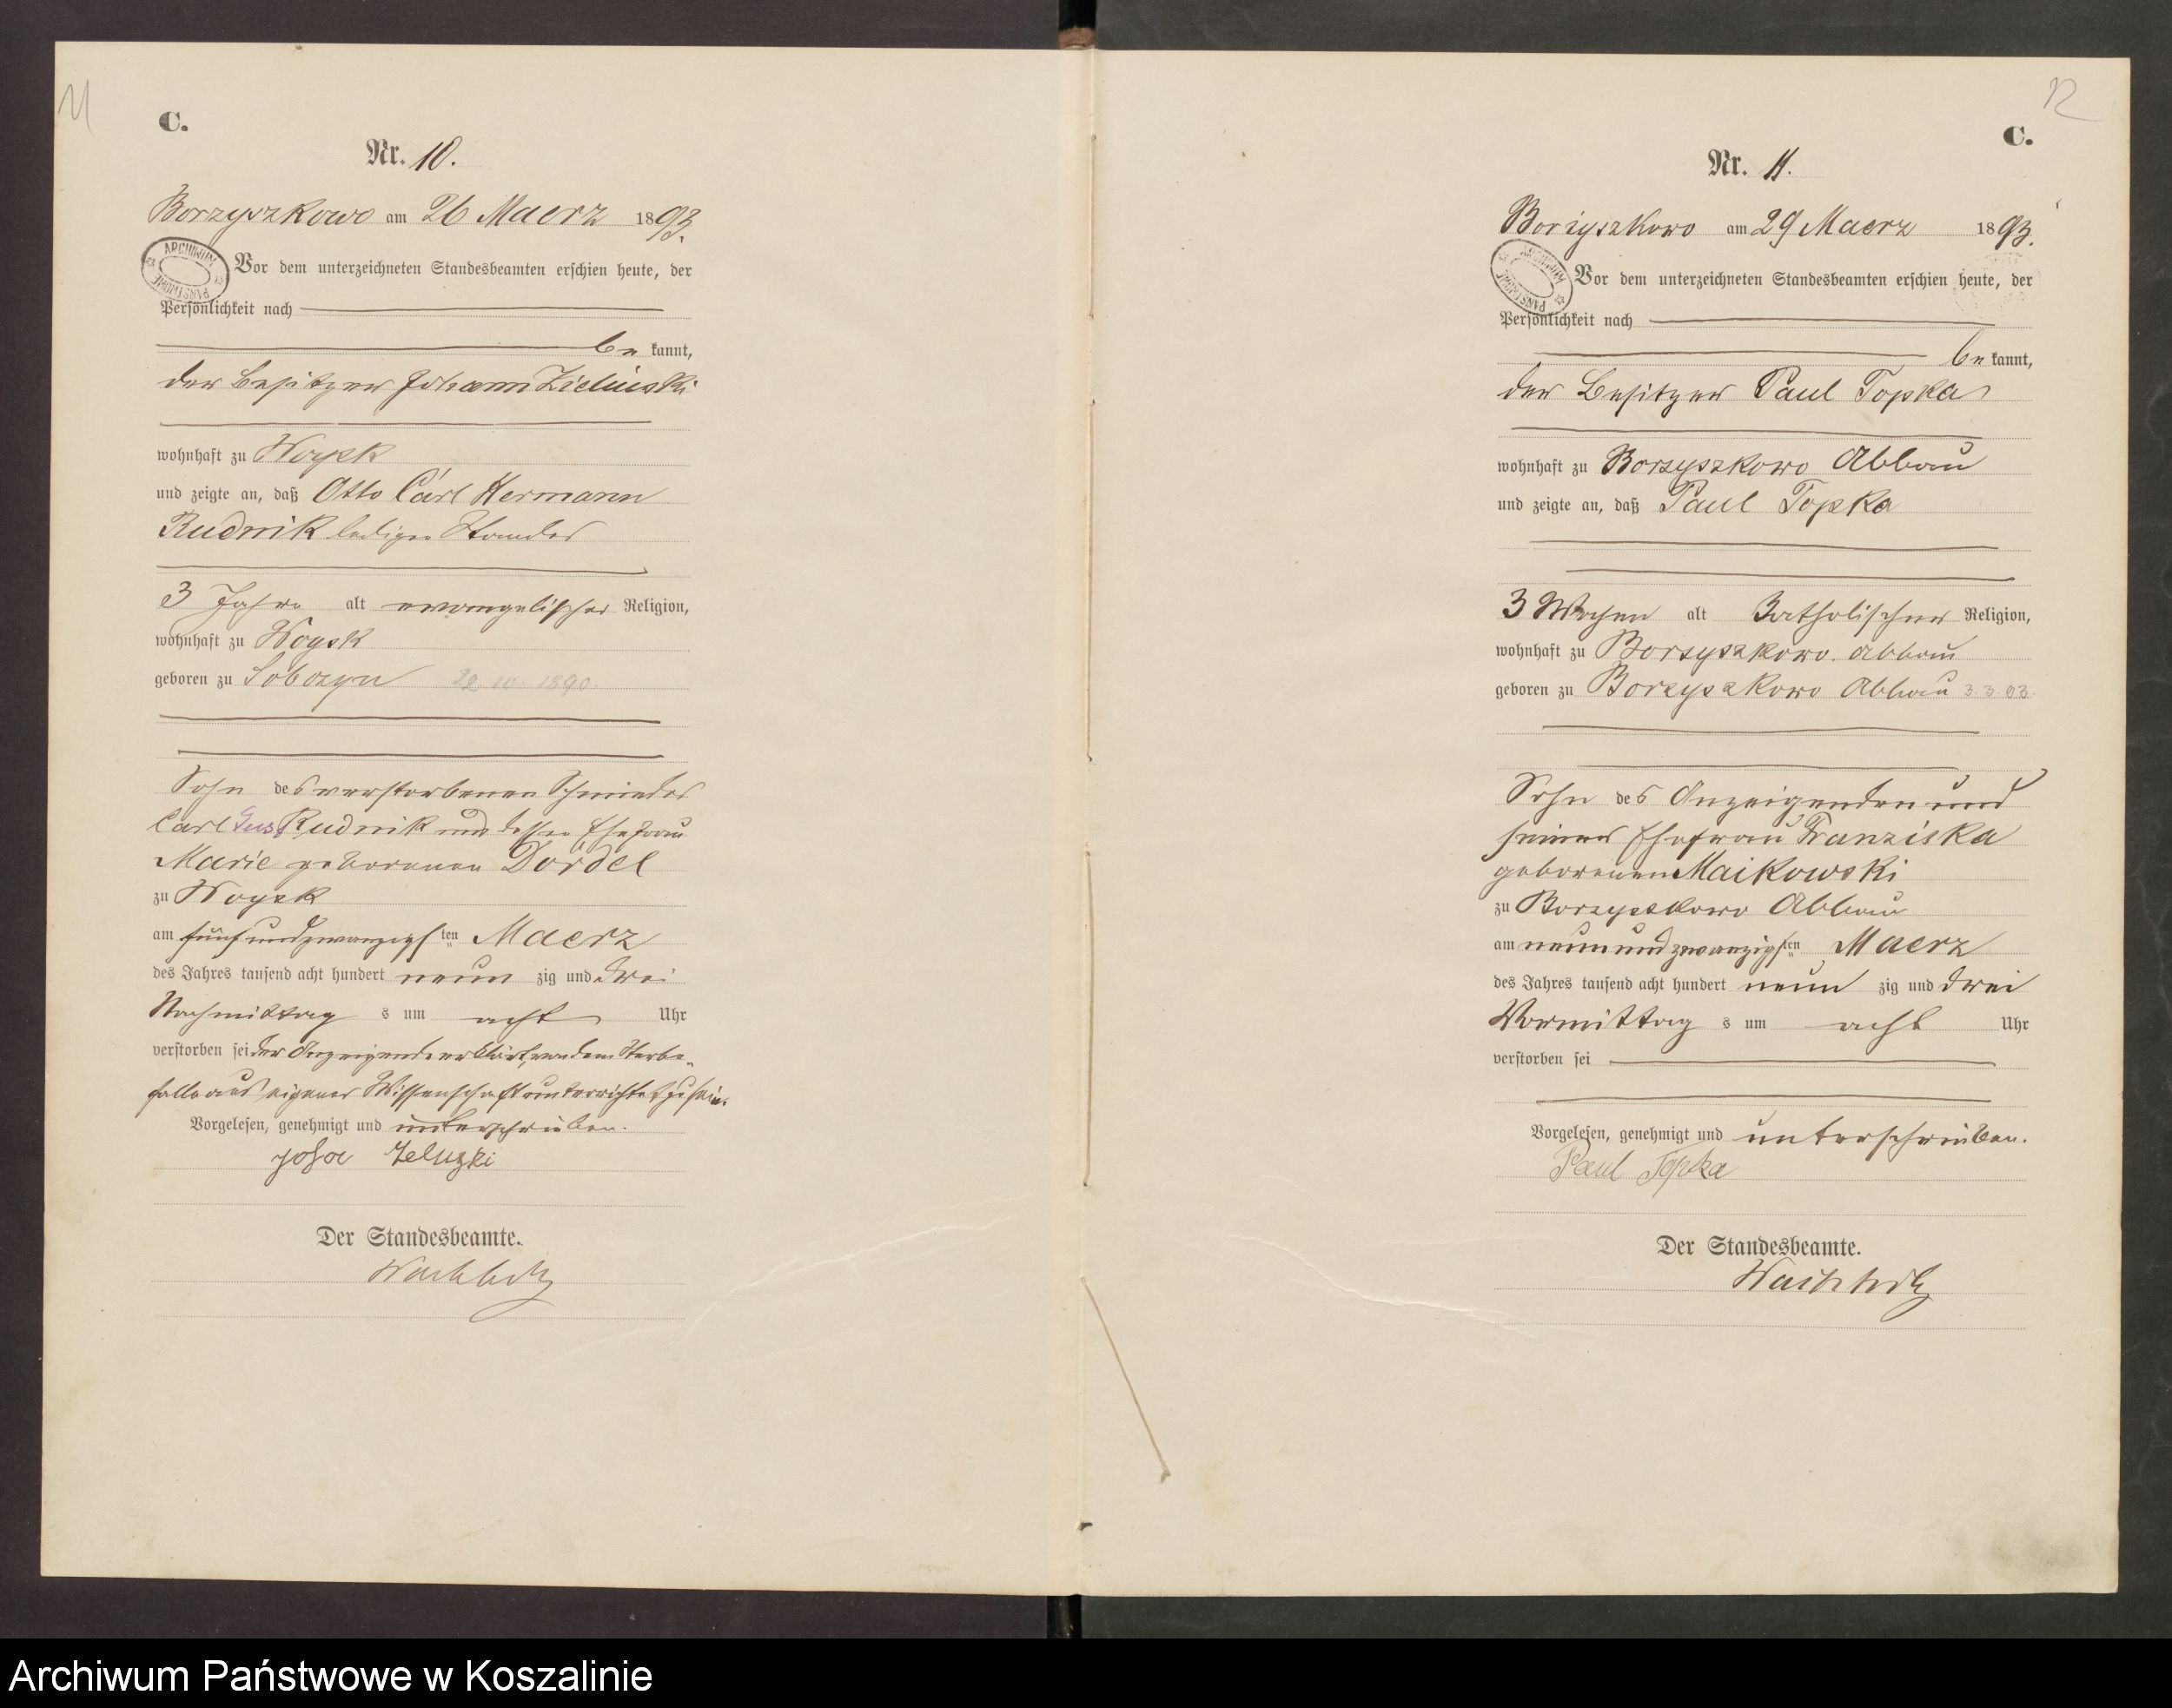 11
C.
Nr. 10.
Borzyszkowo am 26 Maerz 1893.
ARCHIWUM PAŃSTWOWE
Vor dem unterzeichneten Standesbeamten erschien heute, der
Persönlichkeit nach
be kannt,
der Besitzer Johann Zielinski
wohnhaft zu Woysk
und zeigte an, daß Otto Carl Hermann
Rudnik ledigen Standes
3 Jahre alt evangelischer Religion,
wohnhaft zu Woysk
geboren zu Sobczyn 22.10.1890.
Sohn des verstorbenen Schmiedes
Carl Gust Rudnik und dessen Ehefrau
Marie geborenen Dördel
zu Woysk
am fünfundzwanzigsten Maerz
des Jahres tausend acht hundert neun zig und drei
Nachmittag s um acht Uhr
verstorben sei der Anzeigende erklärt, von dem Sterbe-
falle aus eigener Wissenschaft unterrichtet zu sein.
Vorgelesen, genehmigt und unterschrieben.
Der Standesbeamte.
Wachholz
12
C.
Nr. 11.
Borzyszkowo am 29 Maerz 1893.
ARCHIWUM PAŃSTWOWE
Vor dem unterzeichneten Standesbeamten erschien heute, der
Persönlichkeit nach
be kannt,
der Besitzer Paul Topka
wohnhaft zu Borzyszkowo Abbau
und zeigte an, daß Paul Topka
3 Wochen alt katholischer Religion,
wohnhaft zu Borzyszkowo Abbau
geboren zu Borzyszkowo Abbau 3.3.93.
Sohn des Anzeigenden und
seiner Ehefrau Franziska
geborenen Maikowski
zu Borzyszkowo Abbau
am neunundzwanzigsten Maerz
des Jahres tausend acht hundert neun zig und drei
Vormittag s um acht Uhr
verstorben sei
Vorgelesen, genehmigt und unterschrieben.
Paul Topka
Der Standesbeamte.
Wachholz
Archiwum Państwowe w Koszalinie